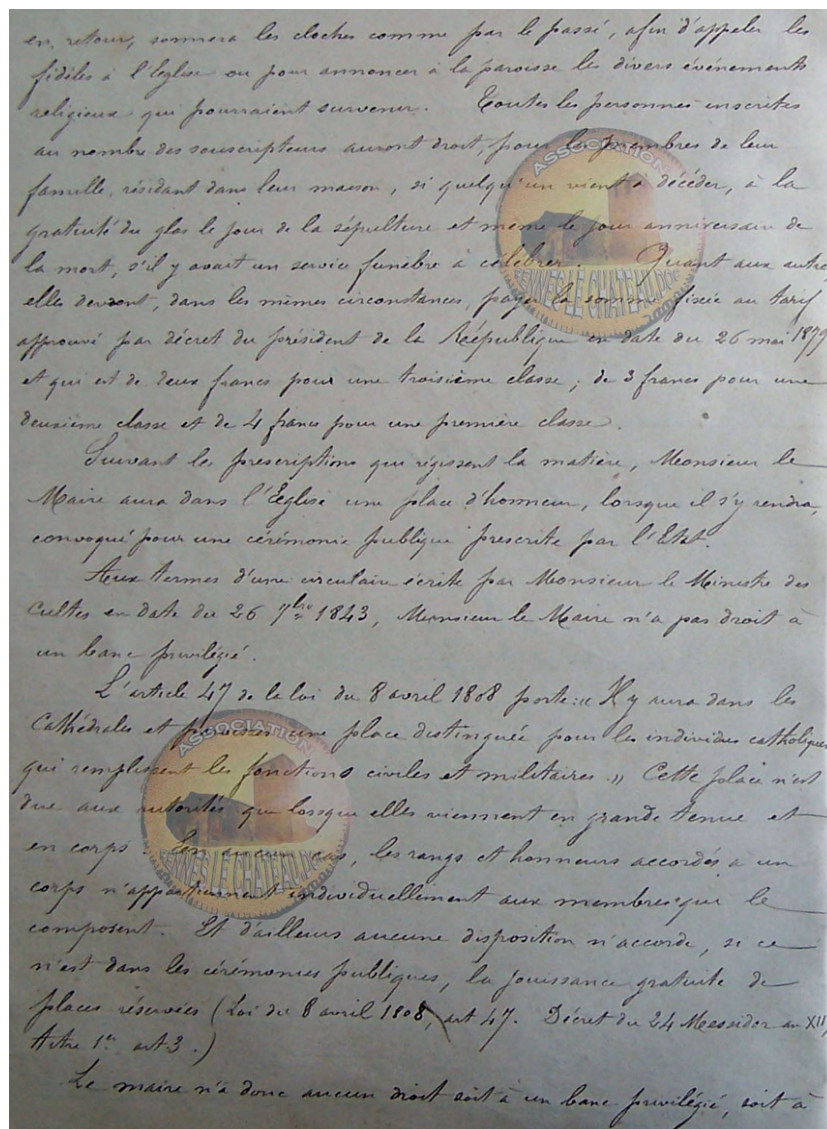 en retour, sonnera les cloches comme par le passé, afin d'appeler les
fidèles à l'Eglise ou pour annoncer à la paroisse les divers événements
religieux qui pourraient survenir. Toutes les personnes inscrites
au nombre des souscripteurs auront droit, pour les membres de leur
famille résidant dans leur maison, si quelqu'un vient à décéder, à la
gratuité du glas le jour de la sépulture et même le jour anniversaire de
la mort, s'il y avait un service funèbre à célébrer. Quant aux autres
elles devront, dans les mêmes circonstances, payer la somme fixée au tarif
approuvé par décret du président de la République en date du 26 mai 1879
et qui est de deux francs pour une troisième classe; de 3 francs pour une
deuxième classe et de 4 francs pour une première classe.
Suivant les prescriptions qui régissent la matière, Monsieur le
Maire aura dans l'Eglise une place d'honneur, lorsque il s'y rendra,
convoqué pour une cérémonie publique prescrite par l'Etat.
Aux termes d'une circulaire écrite par Monsieur le Ministre des
Cultes en date du 26 7bre 1843, Monsieur le Maire n'a pas droit à
un banc privilégié.
L'article 47 de la loi du 8 avril 1808 porte: « Il y aura dans les
Cathédrales et paroisses une place distinguée pour les individus catholiques
qui remplissent les fonctions civiles et militaires. » Cette place n'est
due aux autorités que lorsque elles viennent en grande tenue et
en corps. En aucun cas, les rangs et honneurs accordés à un
corps n'appartiennent individuellement aux membres qui le
composent. Et d'ailleurs aucune disposition n'accorde, si ce
n'est dans les cérémonies publiques, la jouissance gratuite de
places réservées (Loi du 8 avril 1808, art 47. Décret du 24 Messidor an XII,
titre 1er art 3.)
Le maire n'a donc aucun droit soit à un banc privilégié, soit à
ASSOCIATION
RENNES LE CHATEAU.DOC
ASSOCIATION
RENNES LE CHATEAU.DOC